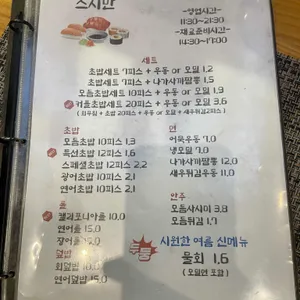 스시판
-영업시간-
11:30~21:30
-재료준비시간-
14:30~17:00
세트
초밥세트 7피스 + 우동 or 모밀 1.2
초밥세트 7피스 + 나가사끼짬뽕 1.5
모듬초밥세트 10피스 + 우동 or 모밀 1.9
커플초밥세트 20피스 + 우동 or 모밀 3.6
초밥
모듬초밥 10피스 1.3
특선초밥 12피스 1.6
스페셜초밥 12피스 2.2
광어초밥 10피스 2.1
연어초밥 10피스 2.1
면
어묵우동 7.0
냉모밀 7.0
나가사끼짬뽕 12.0
새우튀김우동 11.0
롤
캘리포니아롤 10.0
연어롤 15.0
장어롤
안주
모듬사시미 3.8
모듬튀김 1.7
덮밥
회덮밥 10.0
연어덮밥
시원한 여름 신메뉴
물회 1.6
(모밀면 포함)